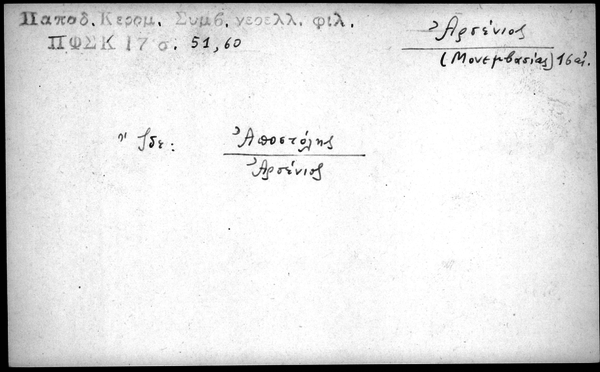 Παπαδ. Κεραμ. Συμβ. νεοελλ. φιλ.
ΠΦΣΚ 17 σ. 51,60
Ἀρσένιος
(Μονεμβασίας) 16 αἰ.
Ἴδε: Ἀποστόλης
Ἀρσένιος